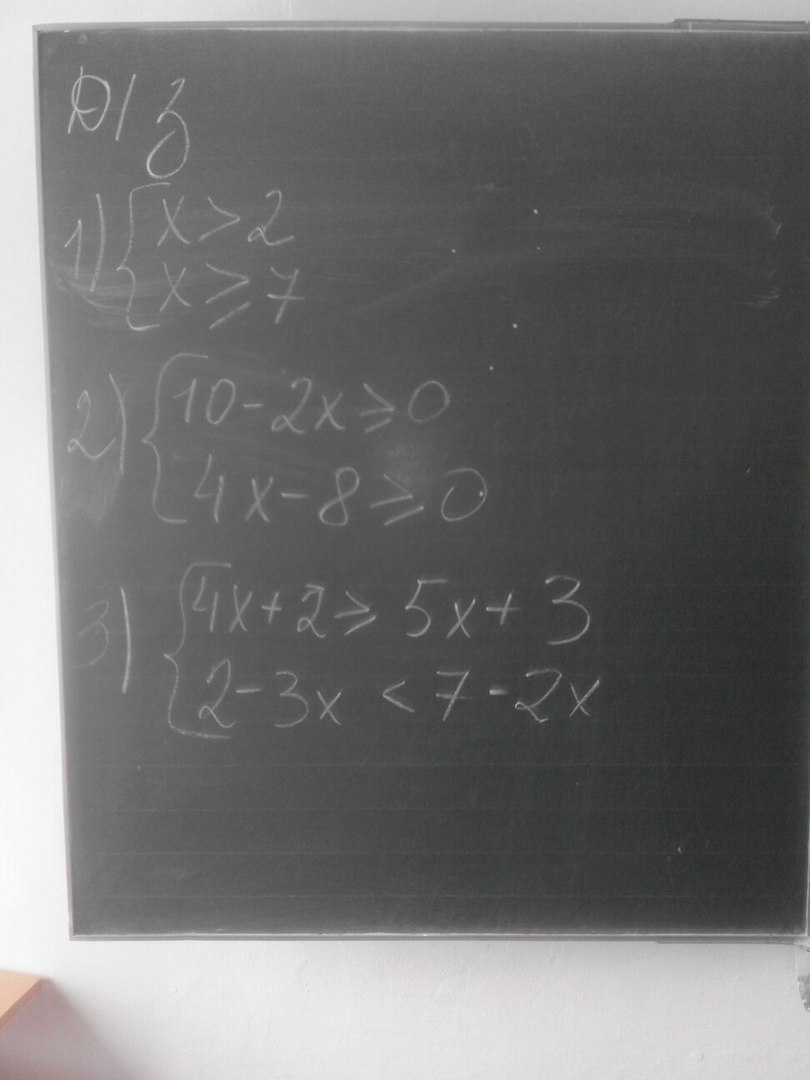 Д/з
1) { x > 2
x ⩾ 7
2) { 10 - 2x ⩾ 0
4x - 8 ⩾ 0
3) { 4x + 2 ⩾ 5x + 3
2 - 3x < 7 - 2x